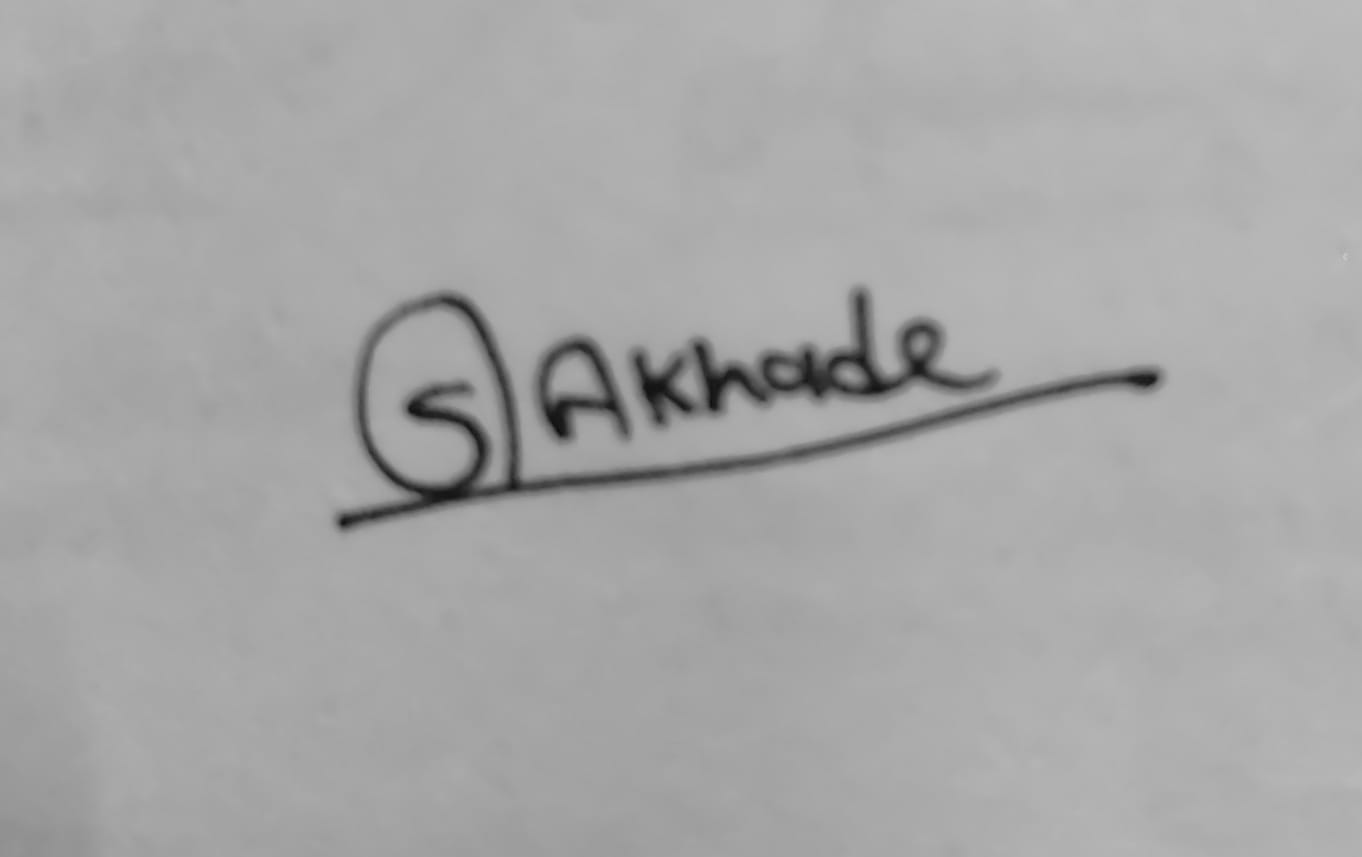 S Akhade